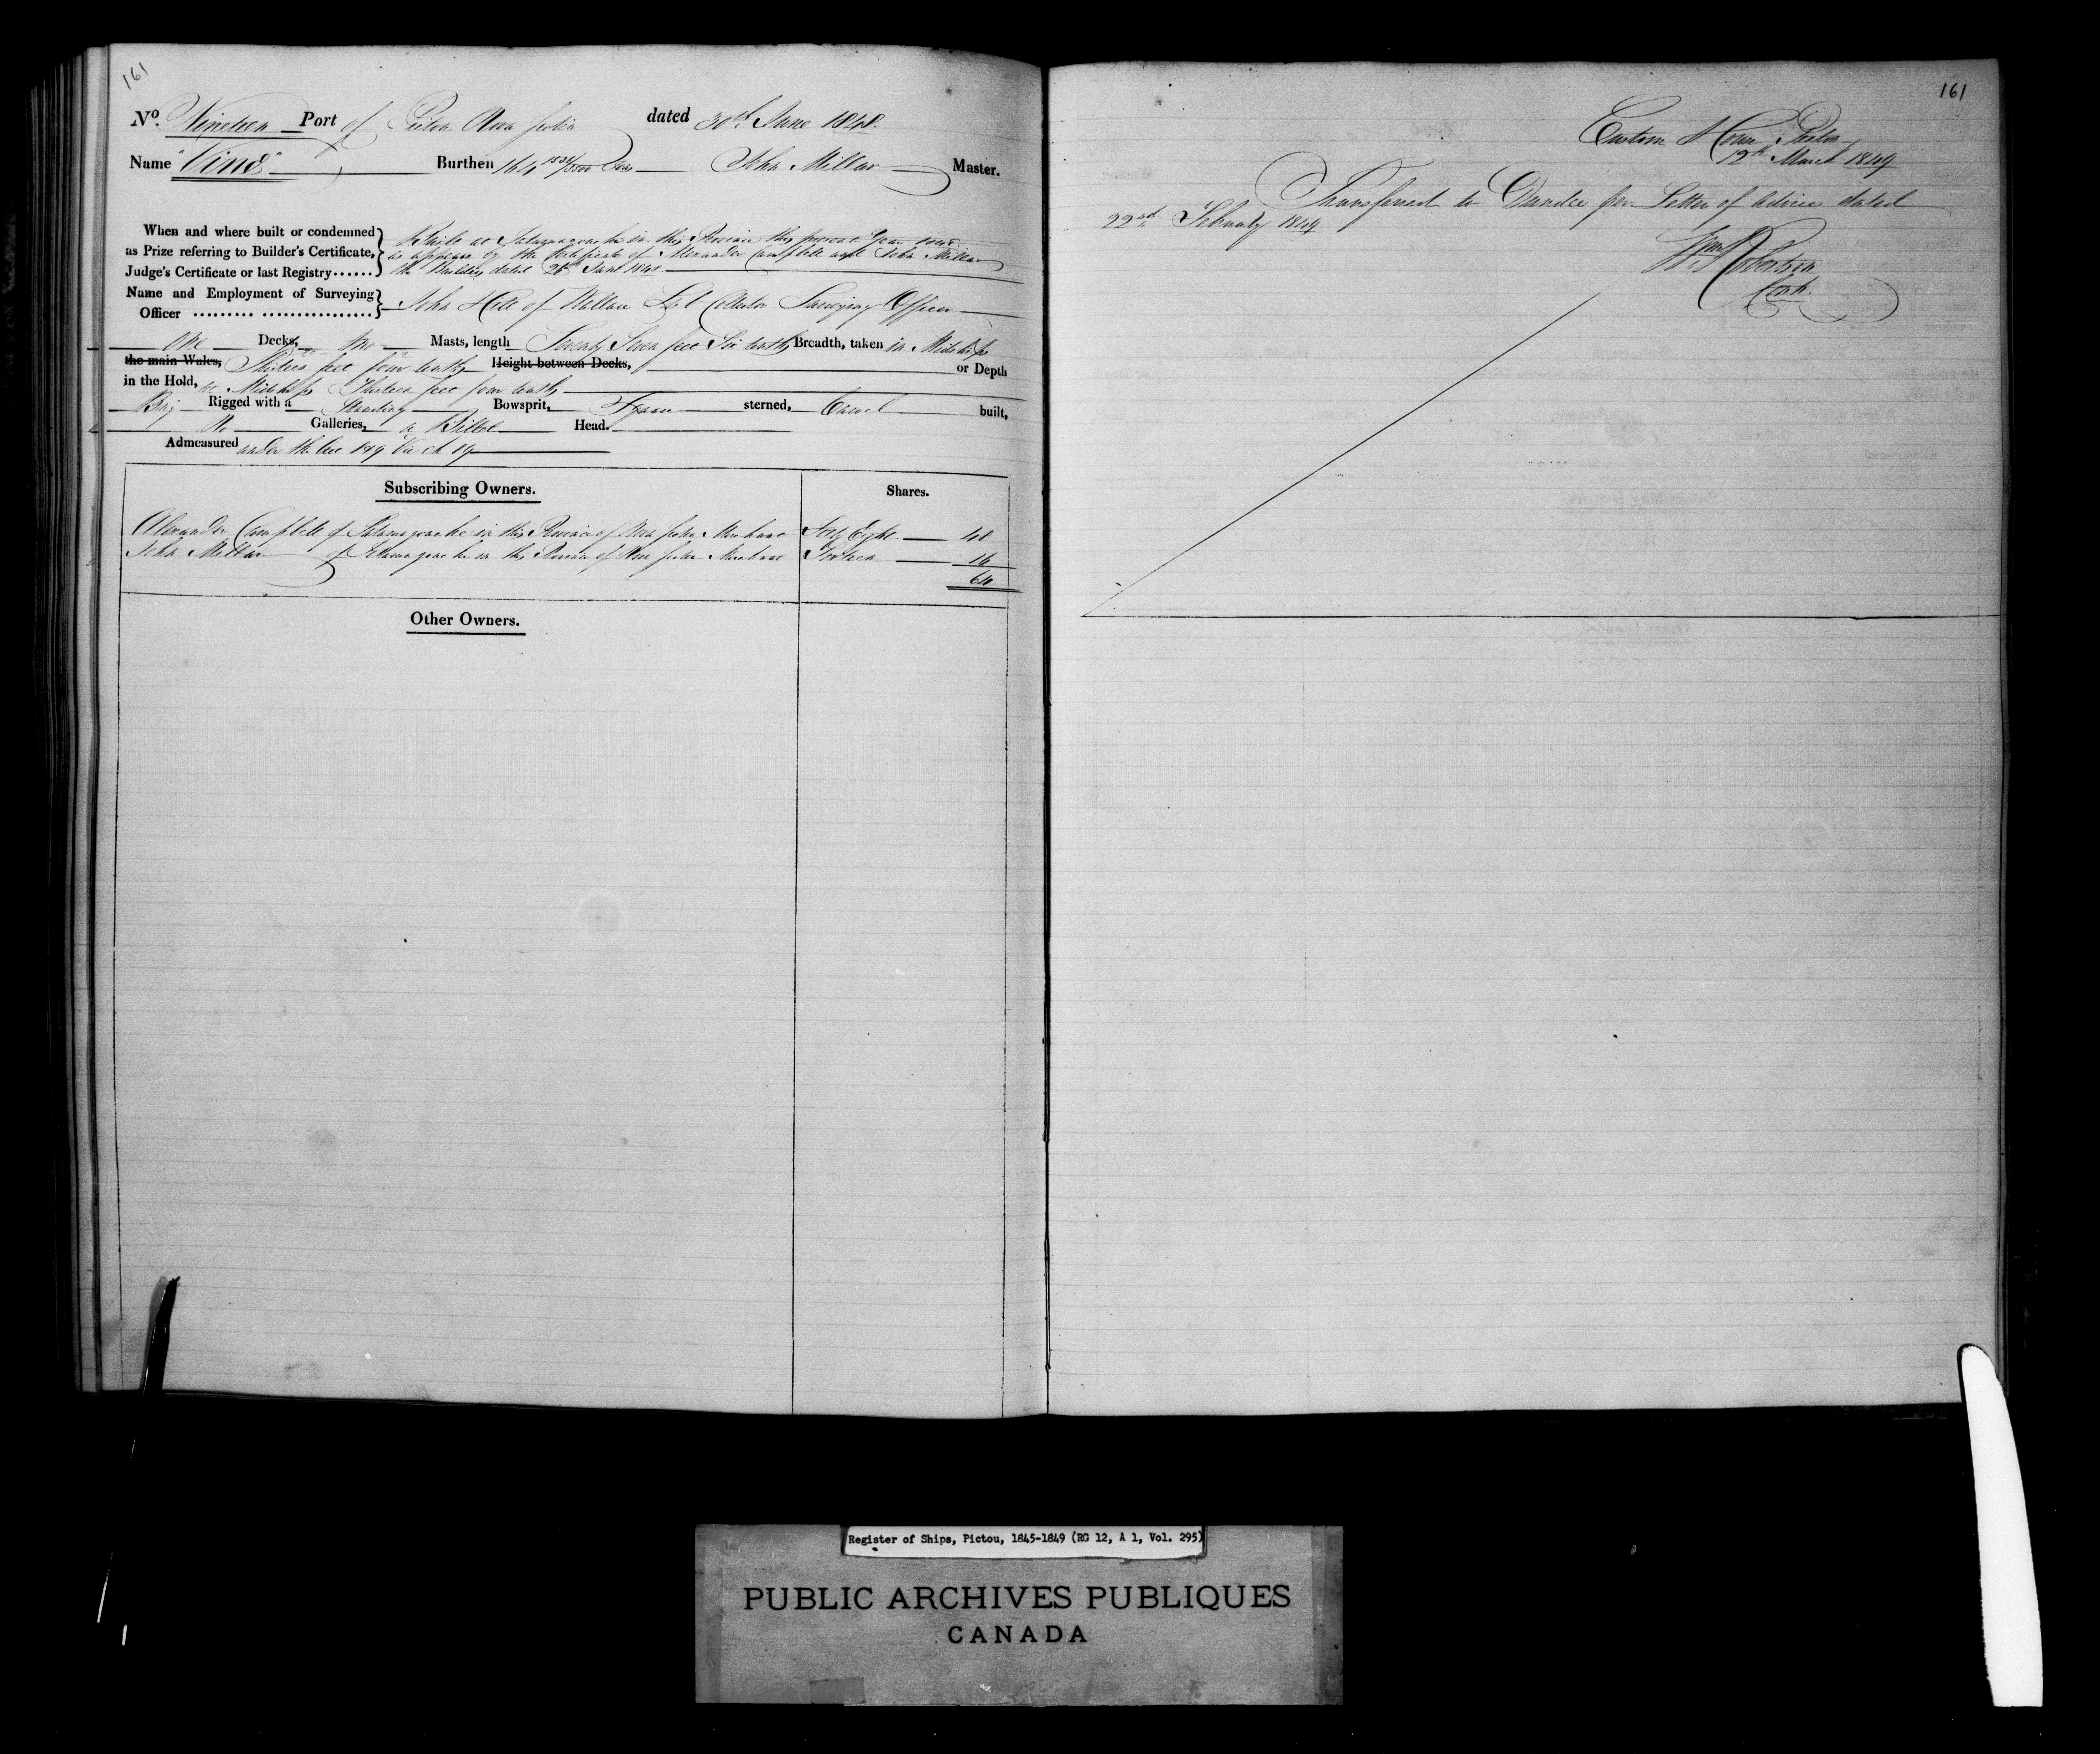 161
No. Nineteen Port of Pictou Nova Scotia dated 30th June 1848.
Name "Vine" Burthen 164 1531/3500 Tons John Millar Master.
When and where built or condemned as Prize referring to Builder's Certificate, Judge's Certificate or last Registry......
Built at Tatamagouche in this Province this present Year 1848
as appears by the Certificate of Alexander Campbell and John Millar
the Builders dated 28th June 1848
Name and Employment of Surveying Officer ......... ................
John of Wallace Sub Collector Surveying Officer
One Decks, Masts, length Seventy Seven feet Six tenths Breadth, taken in Midships
the main Wales, feet four tenths Height between Decks, or Depth
in the Hold, at Midships Thirteen feet four tenths
Brig Rigged with a Standing Bowsprit, Square sterned, Carvel built,
No Galleries, a Billet Head.
Admeasured under the Act 8 & 9 Vic ch 89
Subscribing Owners. Shares.
Alexander Campbell of Tatamagouche in this Province of Nova Scotia Merchant Forty Eight 48
John Millar of Tatamagouche in this Province of Nova Scotia Sixteen 16
64
Other Owners.
161
Custom House Pictou
12th March 1849
Transferred to Dundee per Letter of Advice dated
22nd February 1849
Wm Robertson
Register of Ships, Pictou, 1845-1849 (RG 12, A 1, Vol. 295)
PUBLIC ARCHIVES PUBLIQUES
CANADA